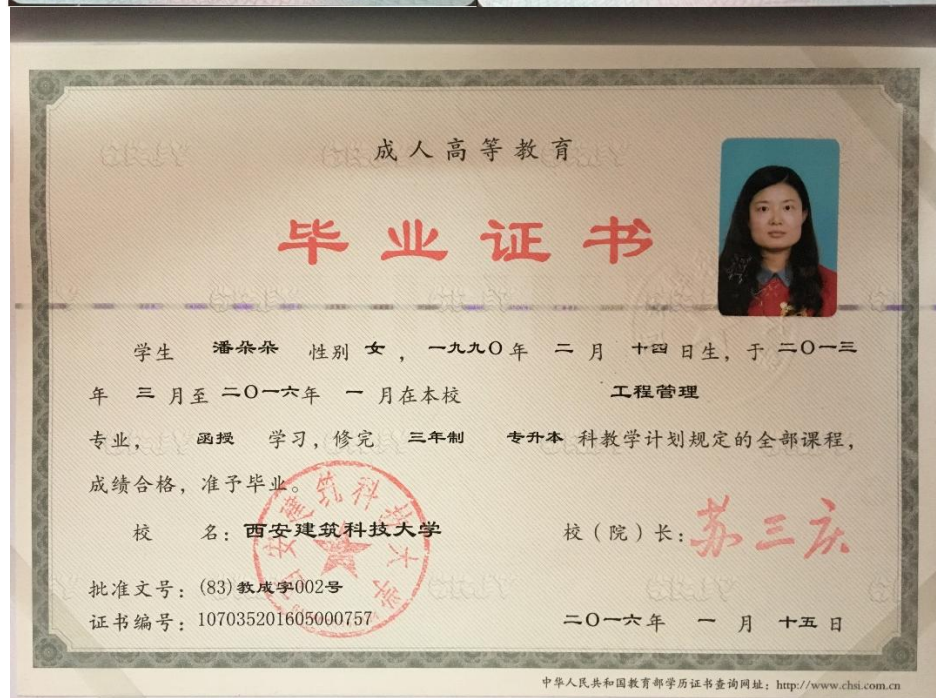 成人高等教育
毕业证书
学生 潘朵朵 性别 女 ，一九九〇年 二 月 十四 日生，于 二〇一三
年 三 月至 二〇一六年 一 月在本校 工程管理
专业， 函授 学习，修完 三年制 专升本 科教学计划规定的全部课程，
成绩合格，准予毕业。
校 名：西安建筑科技大学 校（院）长：苏三庆
西安建筑科技大学
批准文号：(83)教成字002号
证书编号：107035201605000757 二〇一六年 一 月 十五 日
中华人民共和国教育部学历证书查询网址：http://www.chsi.com.cn